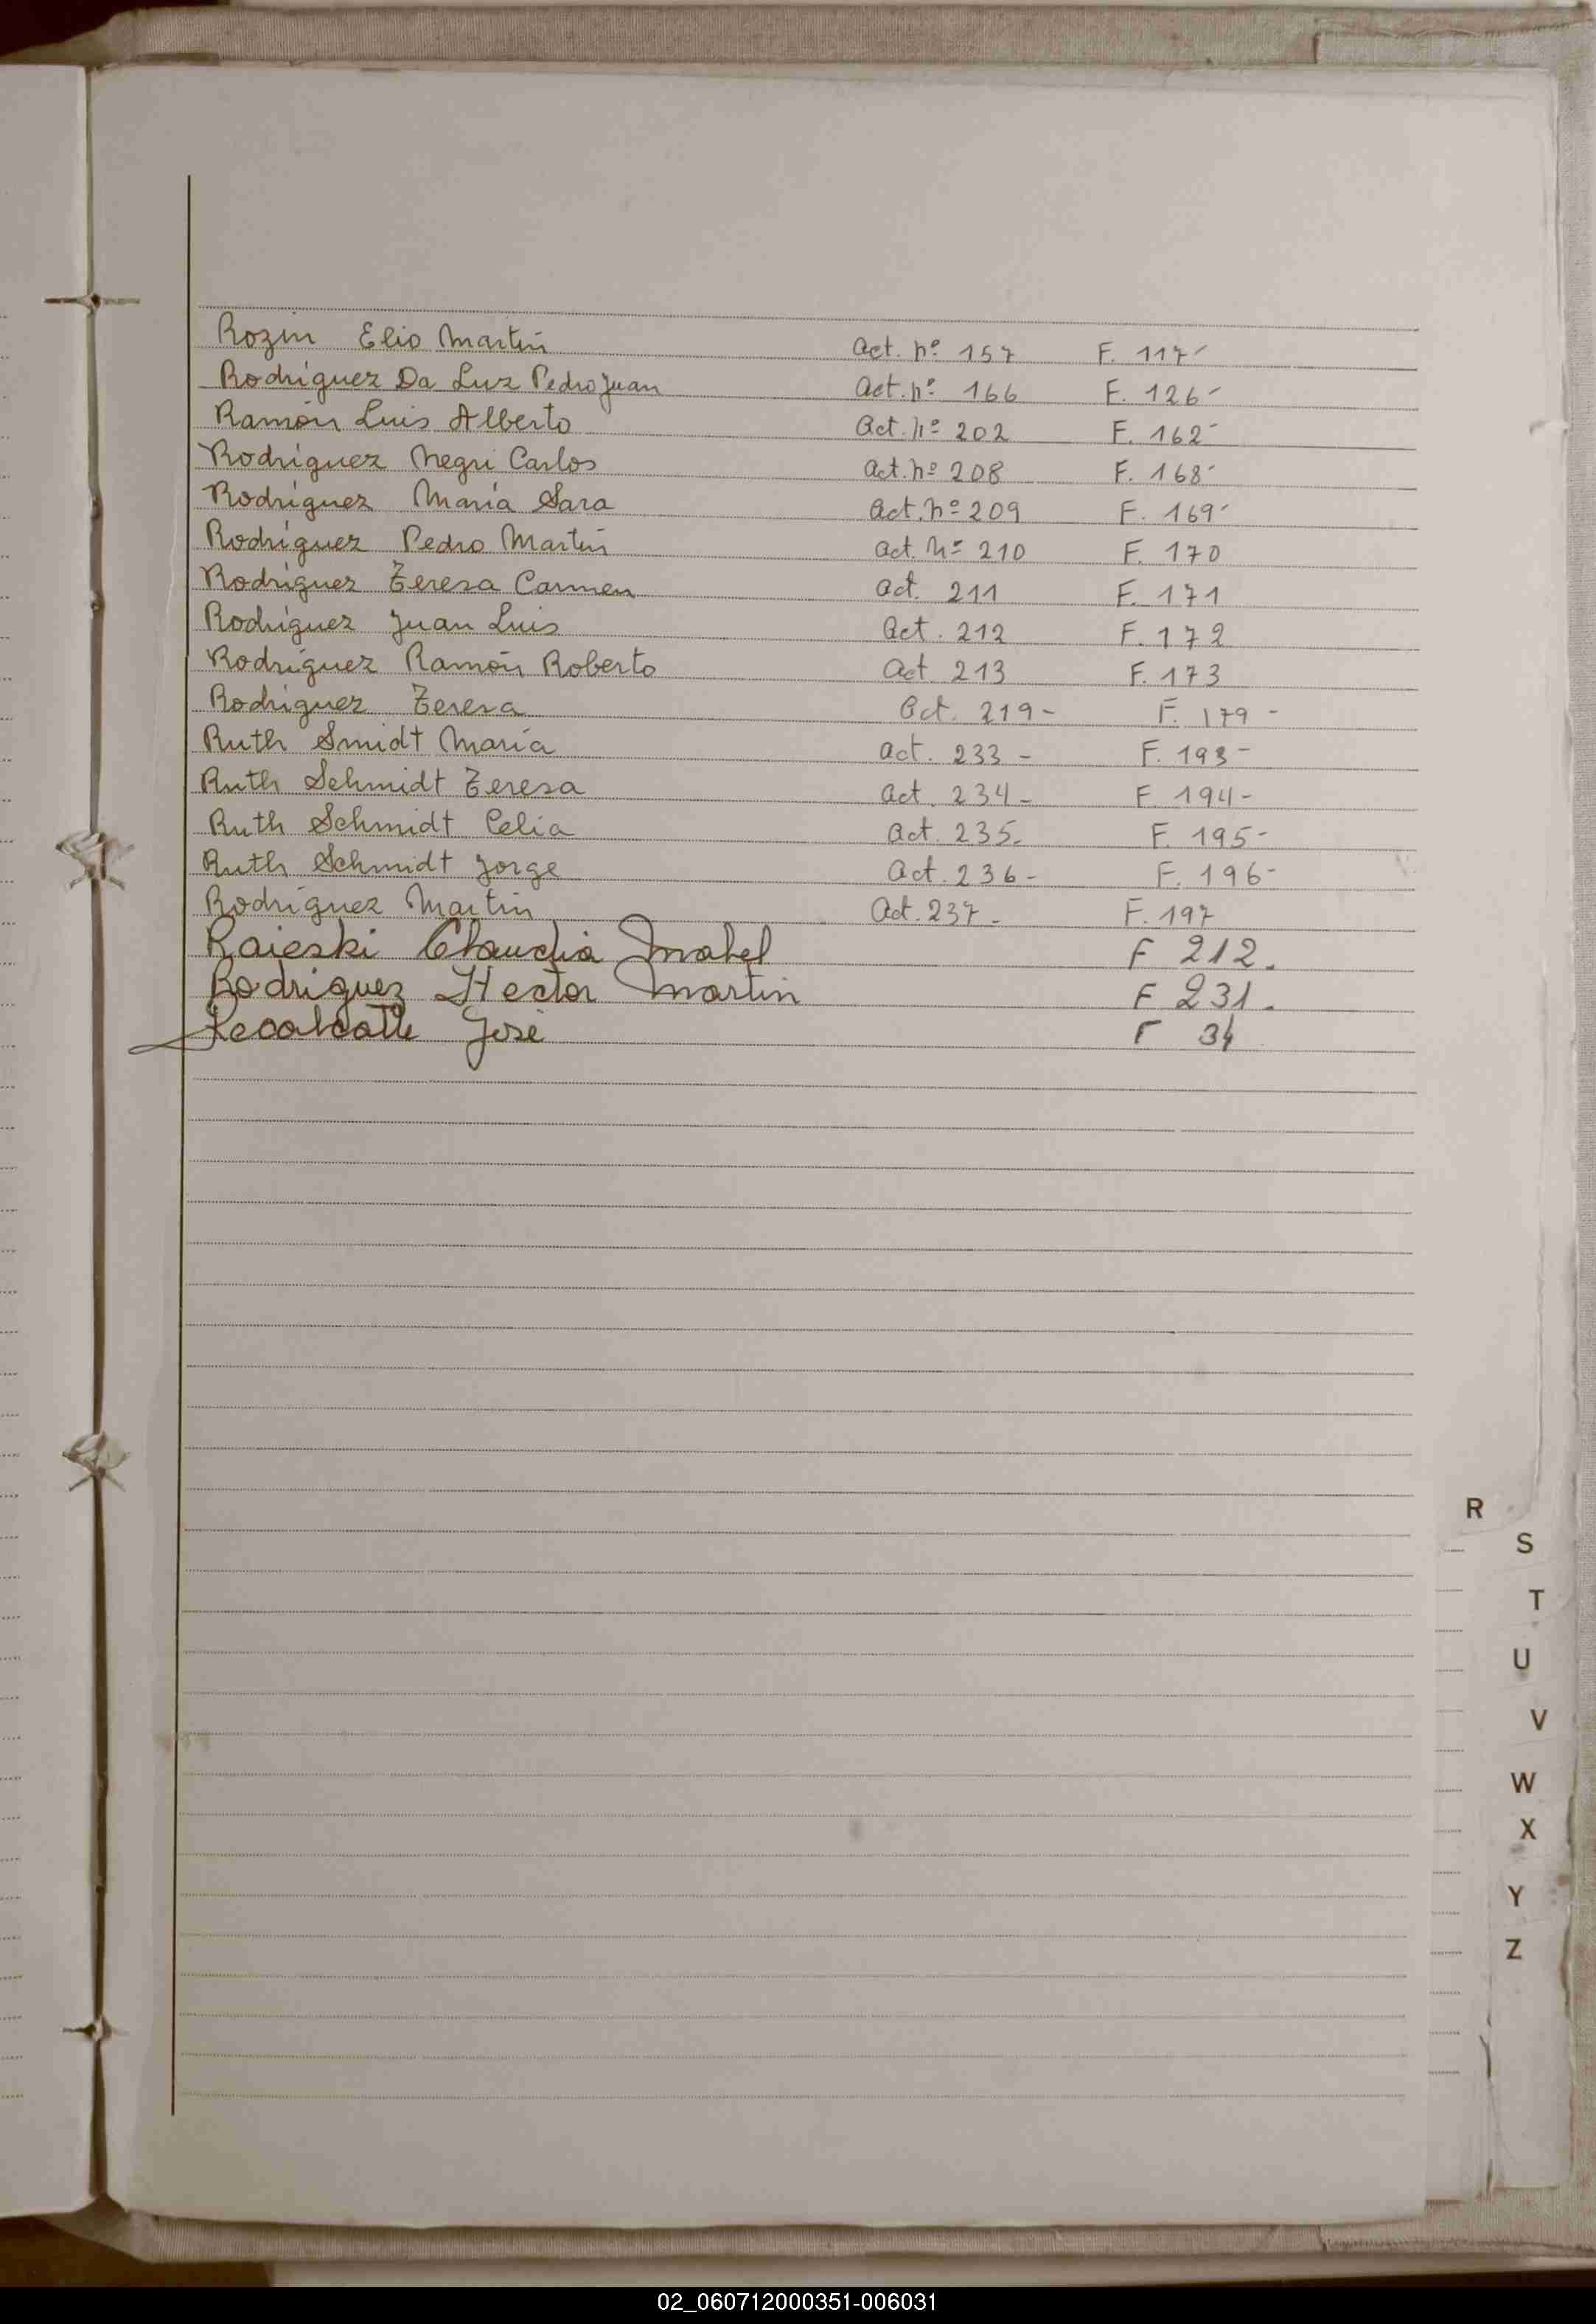 Rozin Elio Martín Act. nº 157 F. 117-
Rodríguez Da Luz Pedro Juan Act. nº 166 F. 126-
Ramón Luis Alberto Act. nº 202 F. 162-
Rodríguez Negri Carlos Act. nº 208 F. 168-
Rodríguez María Sara Act. nº 209 F. 169-
Rodríguez Pedro Martín Act. nº 210 F. 170
Rodríguez Teresa Carmen Act. 211 F. 171
Rodríguez Juan Luis Act. 212 F. 172
Rodríguez Ramón Roberto Act 213 F. 173
Rodríguez Teresa Act. 219- F. 179-
Ruth Smidt María Act. 233- F. 193-
Ruth Schmidt Teresa Act. 234- F. 194-
Ruth Schmidt Celia Act. 235. F. 195-
Ruth Schmidt Jorge Act. 236- F. 196-
Rodríguez Martín Act. 237- F. 197
Raieski Claudia F 212.
Rodriguez Hector Martin F 231.
José F 34
R
S
T
U
V
W
X
Y
Z
02_060712000351-006031